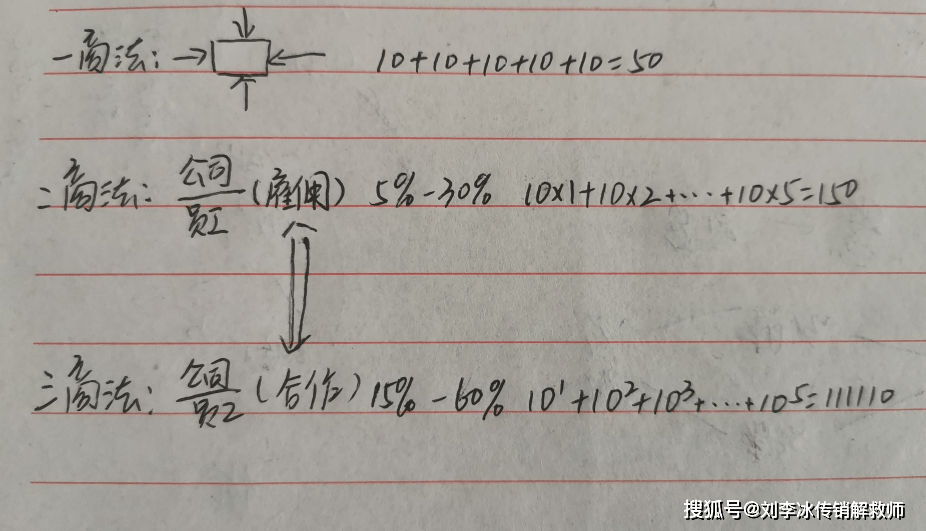 一商法: 10+10+10+10+10=50
二商法: 公司/员工(雇佣) 5%-30% 10×1+10×2+…+10×5=150
三商法: 公司/员工(合作) 15%-60% 10¹+10²+10³+…+10⁵=111110
搜狐号@刘李冰传销解救师